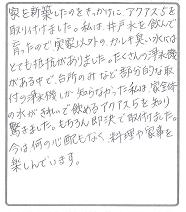 家を新築したのをきっかけに アクアス5を
取り付けました。私は、井戸水を飲んで
育ったので 実家以外の カルキ臭い水には
とても抵抗がありました。たくさんの浄水機
がある中で、台所のみなど部分的な取
付の浄水機しか知らなかった私は、家全体
の水が きれいで飲める アクアス5を知り
驚きました。もちろん即決で取付けました。
今は何の心配もなく 料理や家事を
楽しんでいます。